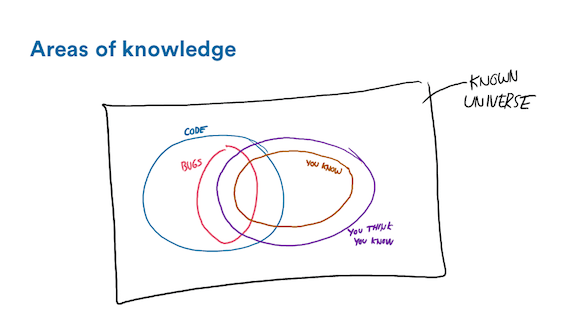 Areas of knowledge
KNOWN
UNIVERSE
CODE
BUGS
YOU KNOW
YOU THINK
YOU KNOW